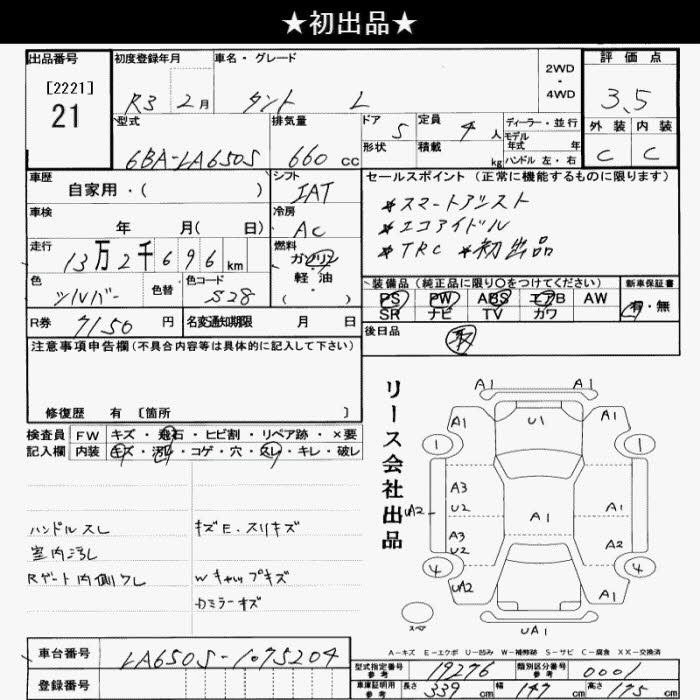 ★初出品★
出品番号 初度登録年月 車名・グレード 2WD・4WD 評価点
[2221]
21
R3 2月 タント L 3.5
型式 排気量 ドア 5 定員 4人 ディーラー・並行
モデル年式 年 外装 内装
6BA-LA650S 660cc 形状 積載 kg ハンドル 左・右 C C
車歴 シフト セールスポイント(正常に機能するものに限ります)
自家用・( ) IAT
※スマートアシスト
車検 冷房 ※エコアイドル
年 月( 日) AC ※TRC ※初出品
走行 燃料
13万2千696km ガソリン・軽油( )
色 色替 色コード 装備品(純正品に限り○をつけてください) 新車保証書
シルバー S28 PS PW ABS エアB AW 有・無
SR ナビ TV カワ
R券 7150円 名変通知期限 月 日 後日品
注意事項申告欄(不具合内容等は具体的に記入して下さい)
修復歴 有 〔箇所 〕
検査員記入欄 FW キズ・飛石・ヒビ割・リペア跡・×要
内装 キズ・汚れ・コゲ・穴・スレ・キレ・破レ
リース会社出品
ハンドルスレ キズE・スリキズ
室内汚レ
Rゲート内側ワレ Wキャップキズ
Dミラーキズ
A1 A1
A1 U1 A1
1 1
A3
U2
UA2 A1 A1
A3
U2 A2
4 4
UA2 A1
スペア UA1
A-キズ E-エクボ U-凹み W-補修跡 S-サビ C-腐食 XX-交換済
車台番号 LA650S-1075204
型式指定番号参考 19276 類別区分番号参考 0001
登録番号 車庫証明用参考 長さ 339cm 幅 147cm 高さ 175cm